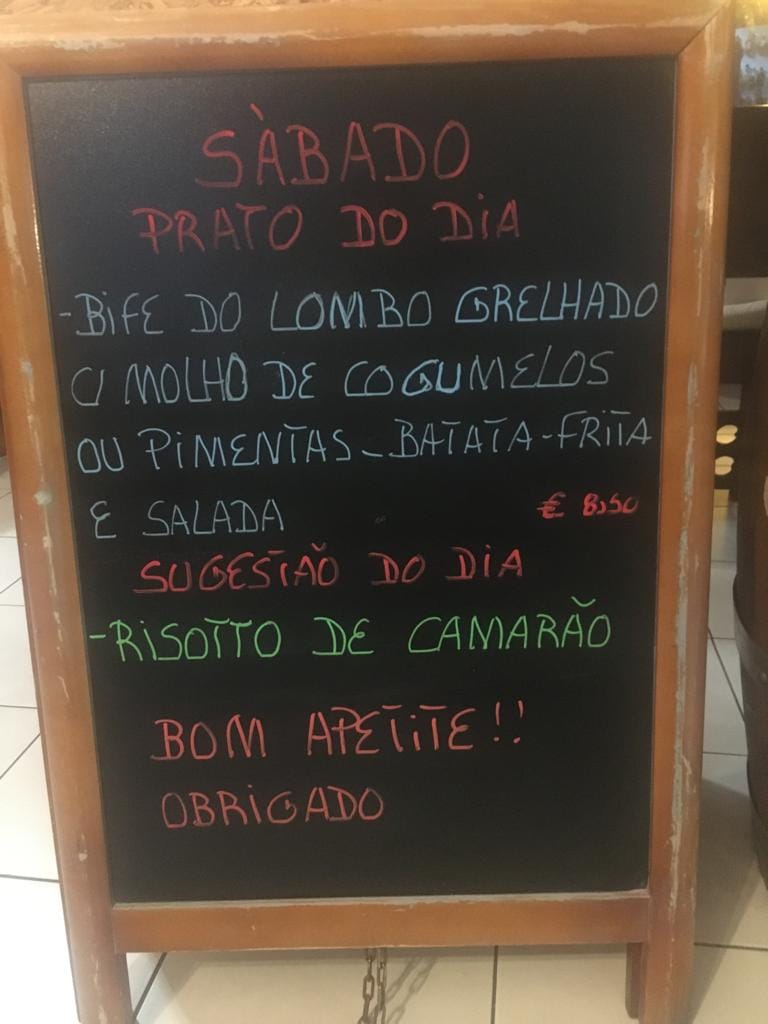 SÀBADO
PRATO DO DIA
-BIFE DO LOMBO GRELHADO
C/ MOLHO DE COGUMELOS
OU PIMENTAS_BATATA-FRITA
E SALADA € 8,50
SUGESTÃO DO DIA
-RISOTTO DE CAMARÃO
BOM APETITE!!
OBRIGADO